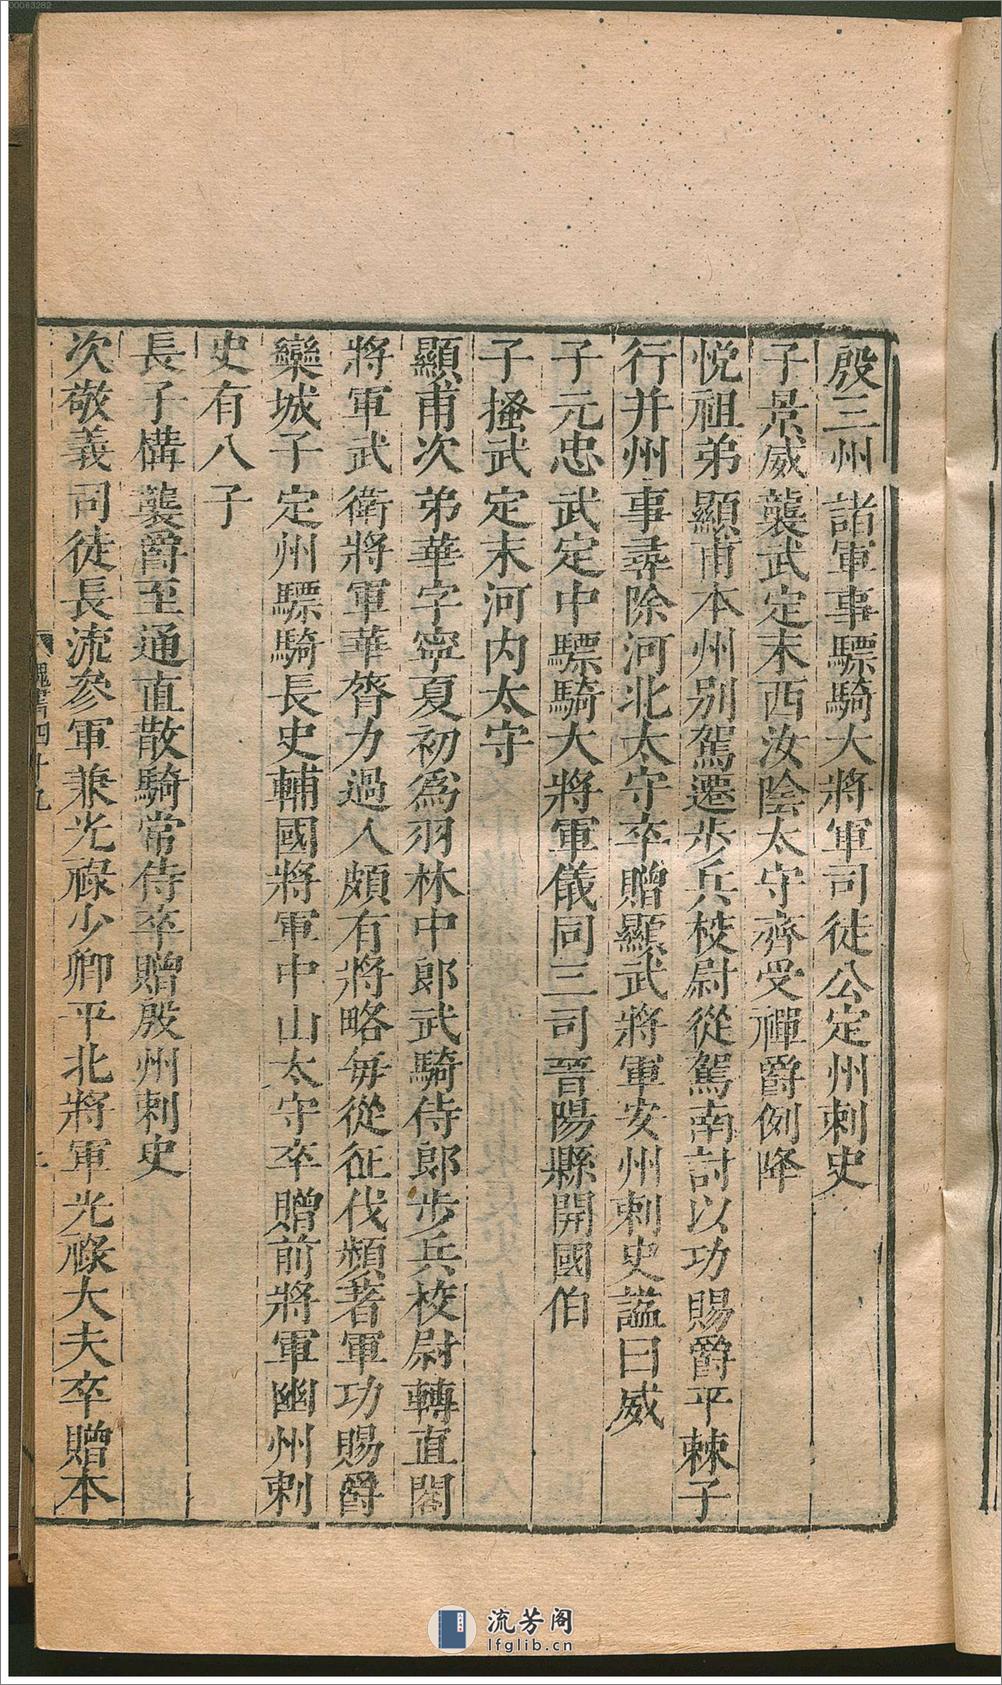 殷三州諸軍事驃騎大將軍司徒公定州刺史
子景威襲武定末西汝陰太守齊受禪爵例降
悅祖弟顯甫本州別駕遷步兵校尉從駕南討以功賜爵平棘子
行并州事尋除河北太守卒贈顯武將軍安州刺史諡曰威
子元忠武定中驃騎大將軍儀同三司晉陽縣開國伯
子搔武定末河內太守
顯甫次弟華字寧夏初為羽林中郎武騎侍郎步兵校尉轉直閤
將軍武衛將軍華膂力過人頗有將略每從征伐頻著軍功賜爵
欒城子定州驃騎長史輔國將軍中山太守卒贈前將軍幽州刺
史有八子
長子構襲爵至通直散騎常侍卒贈殷州刺史
次敬義司徒長流參軍兼光祿少卿平北將軍光祿大夫卒贈本
魏書四十九
00063282
流芳阁
lfglib.cn